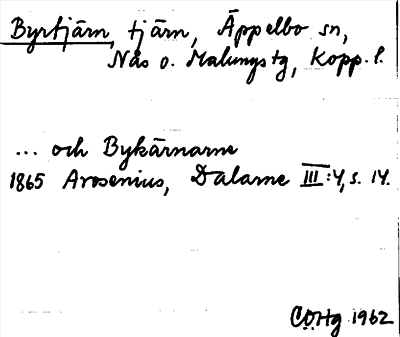 Byrtjärn, tjärn, Äppelbo sn,
Nås o. Malungs tg, Kopp. l.
... och Bykärnarne
1865 Arosenius, Dalarne III:4, s. 14.
COHg 1962